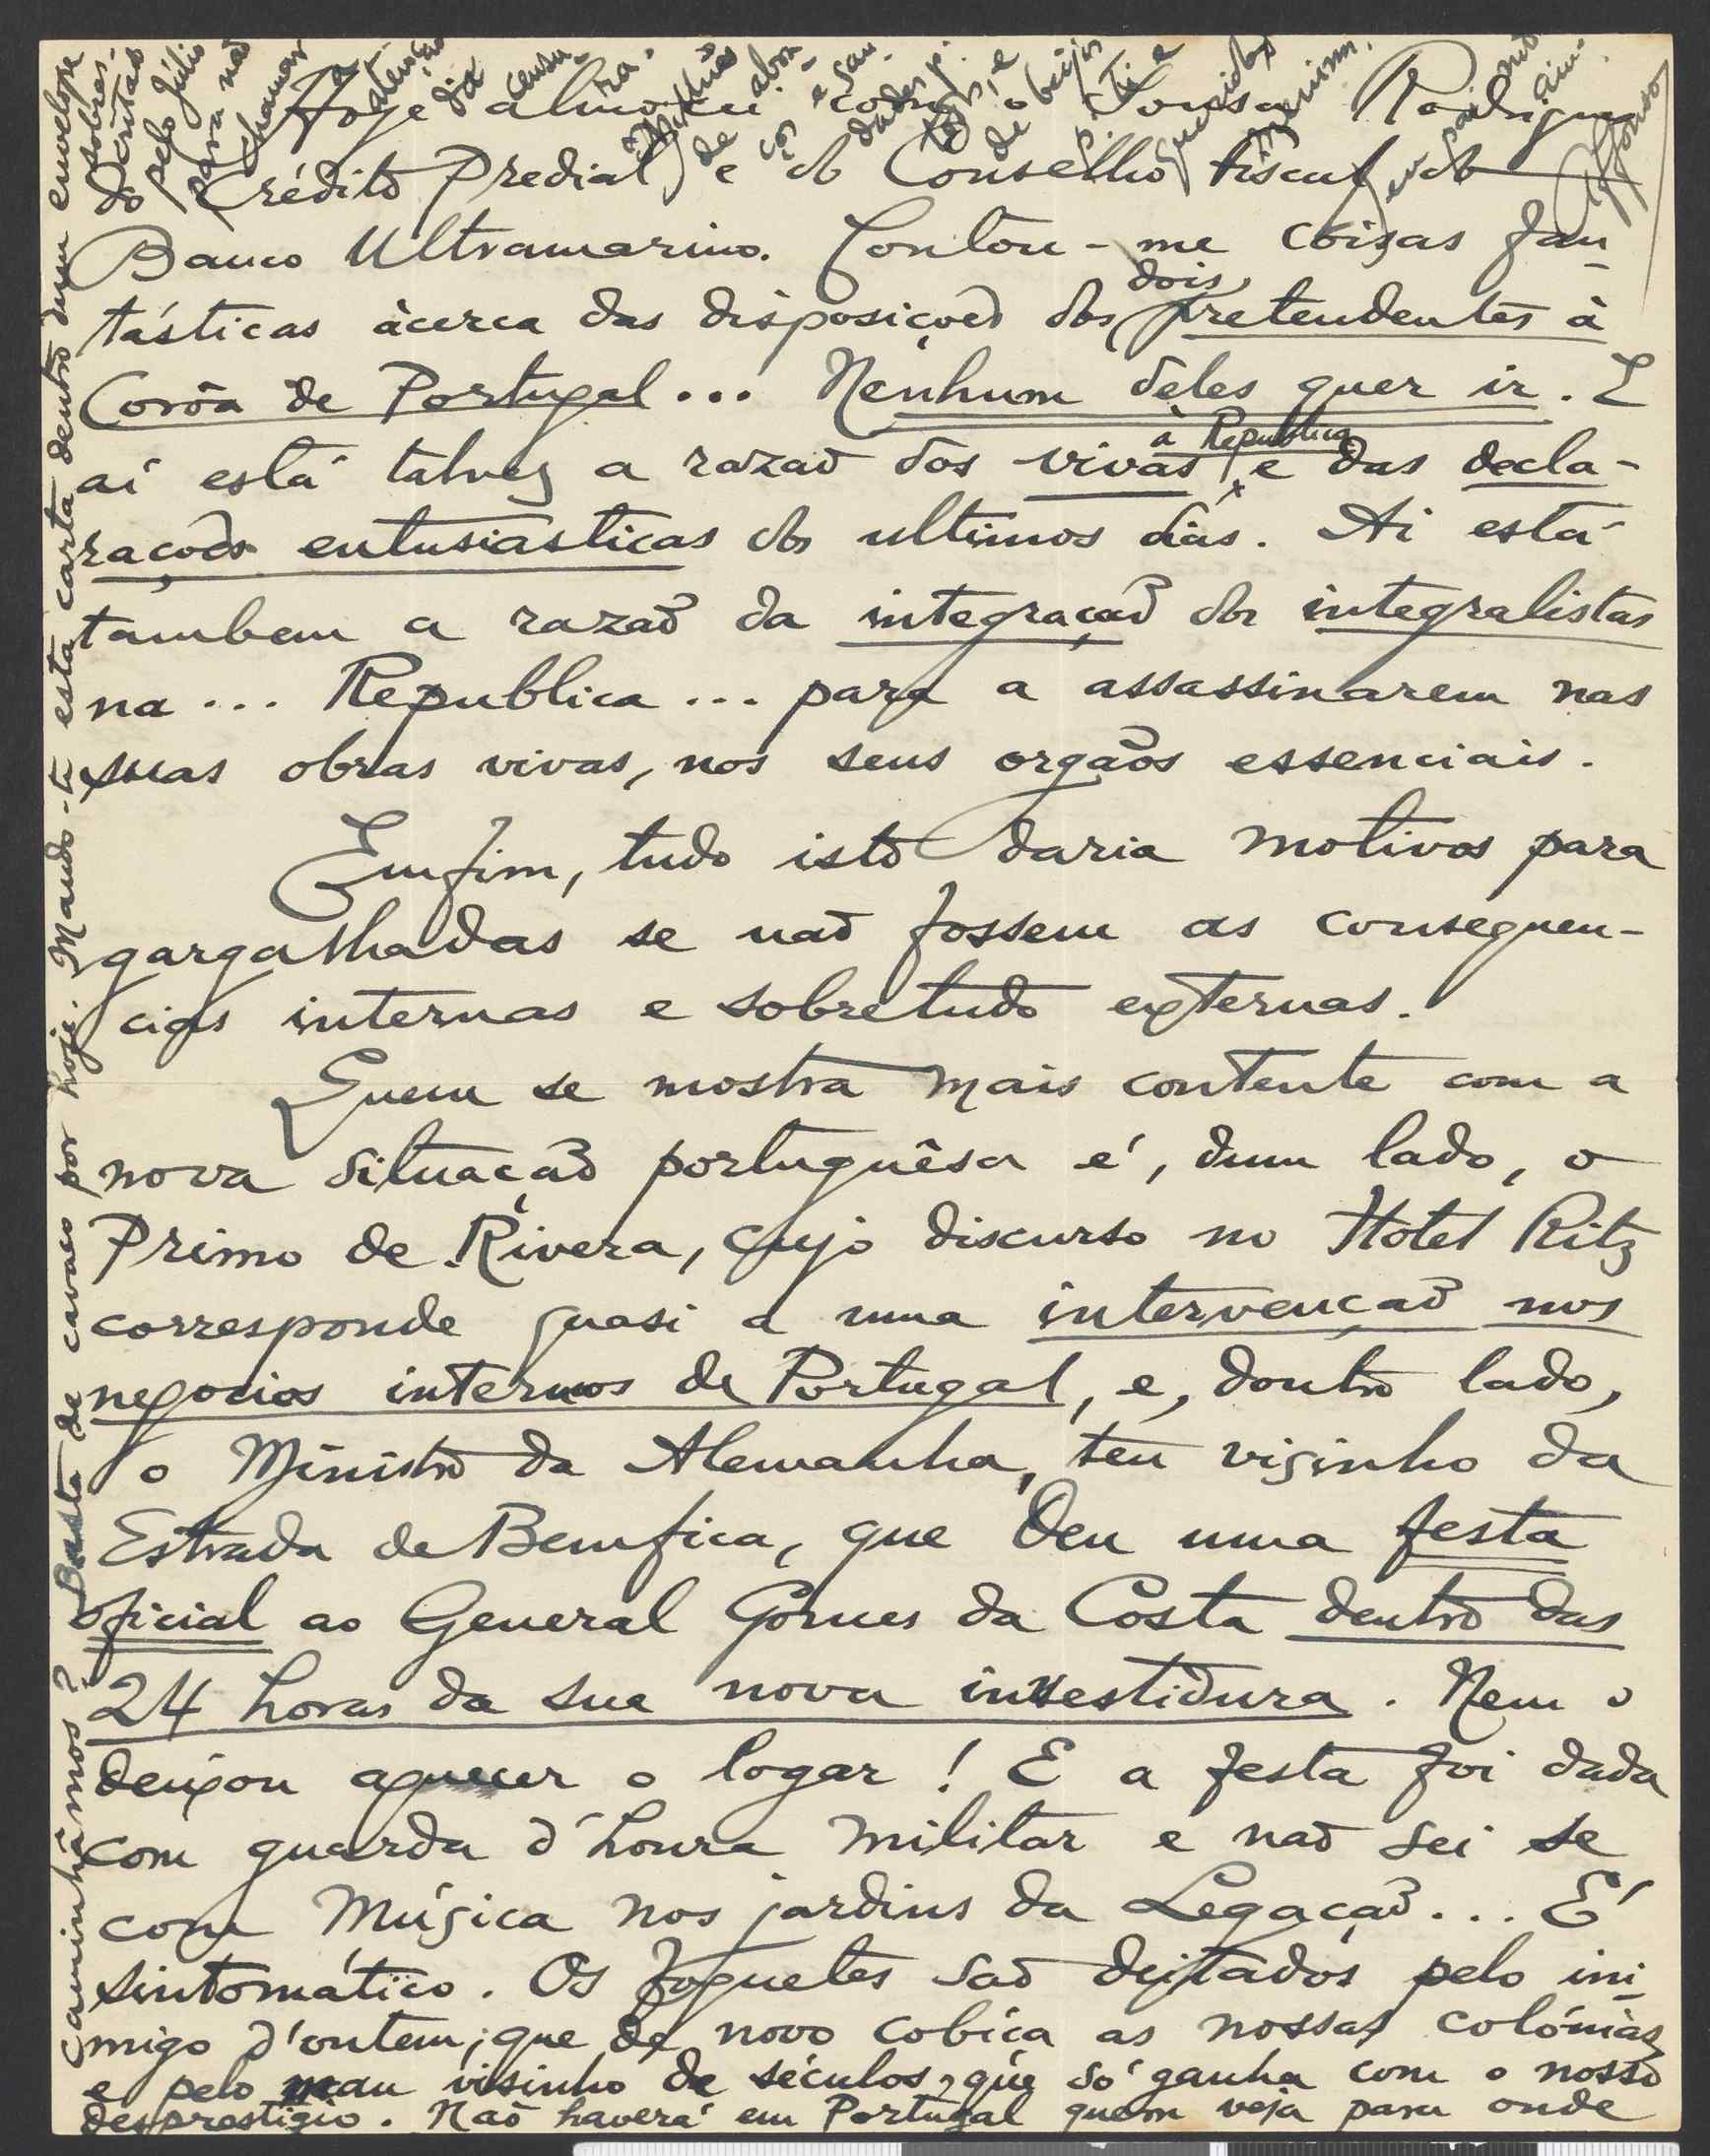 Hoje almocei com o Sousa Rodrigues
(Crédito Predial) e do Conselho fiscal do
Banco Ultramarino. Contou-me coisas fan-
tásticas àcerca das disposiçoes dos dois pretendentes à
Corôa de Portugal... Nenhum deles quer ir. E
aí está talvez a razaõ dos vivas à Republica e das decla-
raçoes entusiasticas dos ultimos dias. Ai está
tambem a razaõ da integraçaõ dos integralistas
na... Republica... para a assassinarem nas
suas obras vivas, nos seus orgaõs essenciais.
Emfim, tudo isto daria motivos para
gargalhadas se naõ fossem as consequen-
cias internas e sobretudo externas.
Quem se mostra mais contente com a
nova situaçaõ portuguêsa é, dum lado, o
Primo de Rivera, cujo discurso no Hotel Ritz
corresponde quasi a uma intervençaõ nos
negocios internos de Portugal, e, doutro lado,
o Ministro da Alemanha, teu visinho da
Estrada de Bemfica, que deu uma festa
oficial ao General Gomes da Costa dentro das
24 horas da sua nova investidura. Nem o
deixou aquecer o logar! E a festa foi dada
com guarda d'honra militar e naõ sei se
com Música nos jardins da Legaçaõ... É
sintomático. Os foguetes saõ deitados pelo ini-
migo d'ontem, que de novo cobiça as nossas colónias
e pelo mau visinho de séculos, que só ganha com o nosso
desprestigio. Naõ haverá em Portugal quem veja para onde
caminhâmos? Basta de cavaco por hoje. Mando-te esta carta dentro dum envelope
sobres-
critado
pelo Júlio
para naõ
chamar
a
atençaõ
da
censu-
ra.
de
e sau-
dades p.
todos, e
de beijos
p. ti e
Affonso